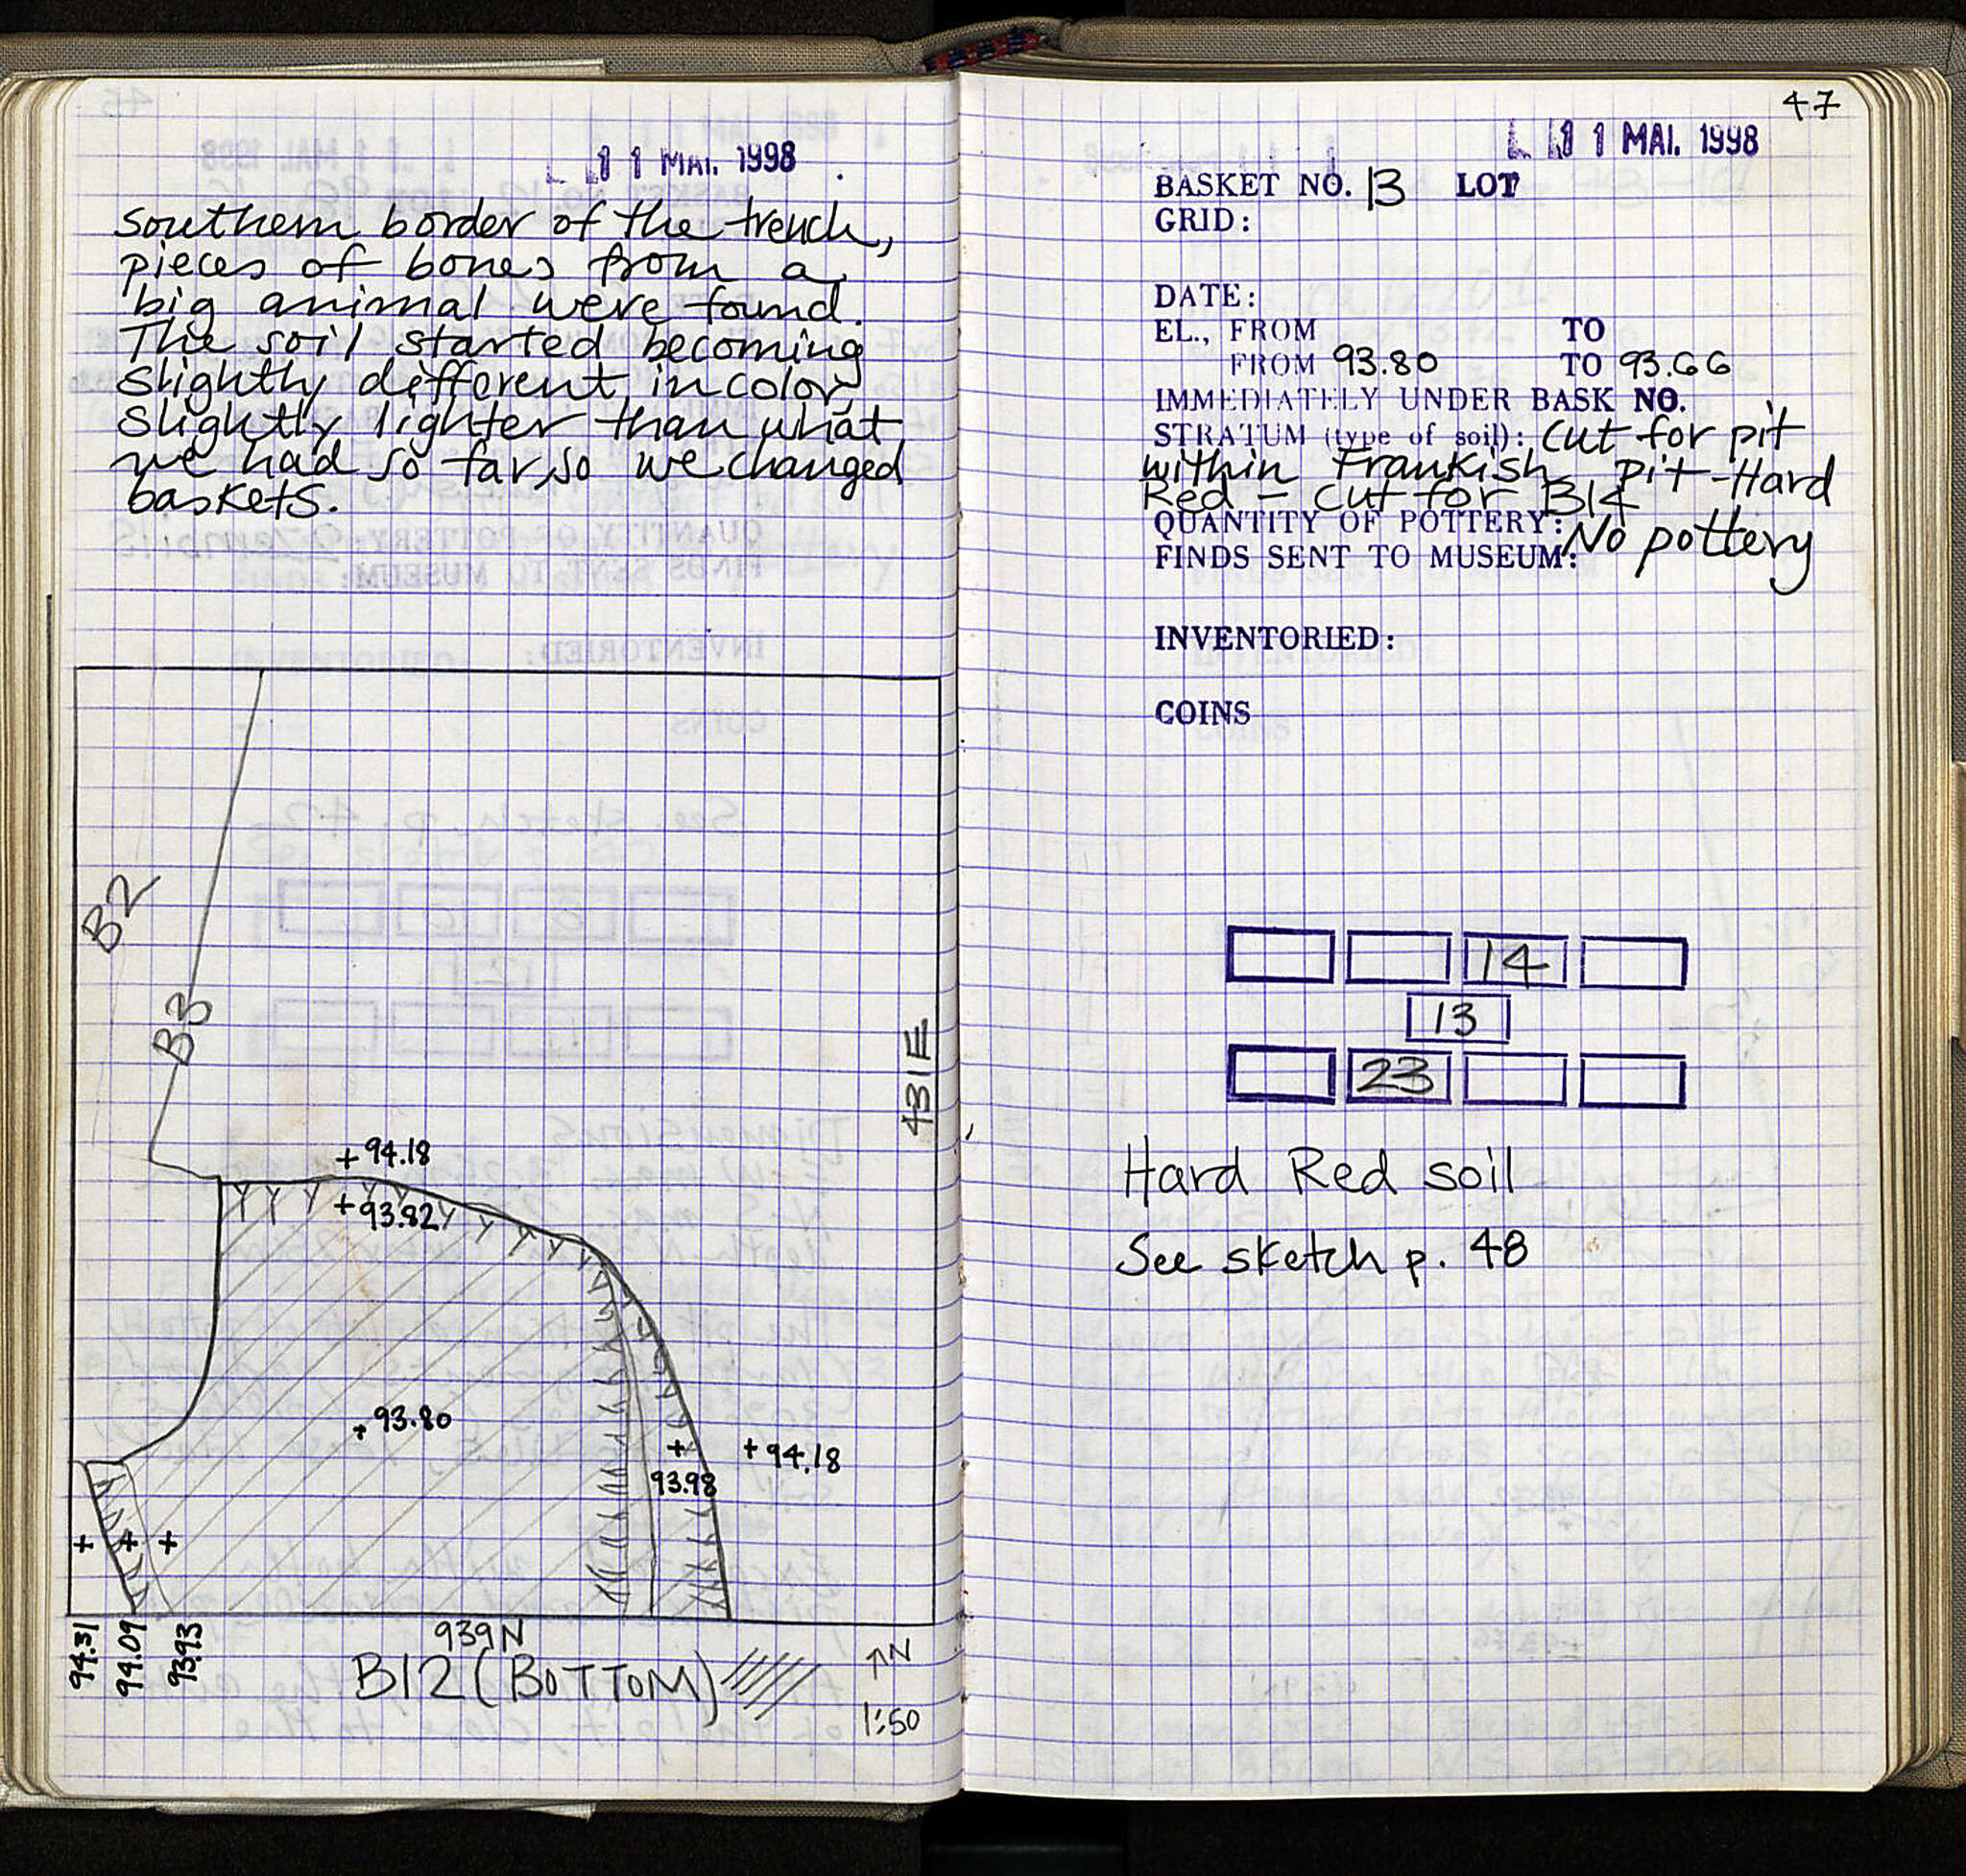 11 MAI. 1998
southern border of the trench,
pieces of bones from a
big animal were found.
The soil started becoming
slightly different in color,
slightly lighter than what
we had so far, so we changed
baskets.
B2
B3
431E
+94.18
+93.82
+93.80
+
93.98
+94.18
+ + +
94.31
94.09
93.93
939N
B12 (BOTTOM)
↑N
1:50
47
11 MAI. 1998
BASKET NO. 13 LOT
GRID:
DATE:
EL., FROM TO
FROM 93.80 TO 93.66
IMMEDIATELY UNDER BASK NO.
STRATUM (type of soil): cut for pit
within Frankish pit - Hard
Red - cut for B14
QUANTITY OF POTTERY:
FINDS SENT TO MUSEUM: No pottery
INVENTORIED:
COINS
14
13
23
Hard Red soil
See sketch p. 48